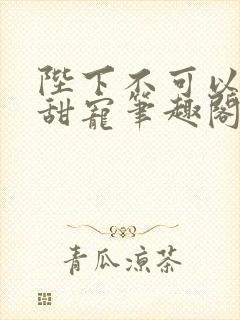 陛下不可以
甜寵筆趣閣
青瓜凉茶